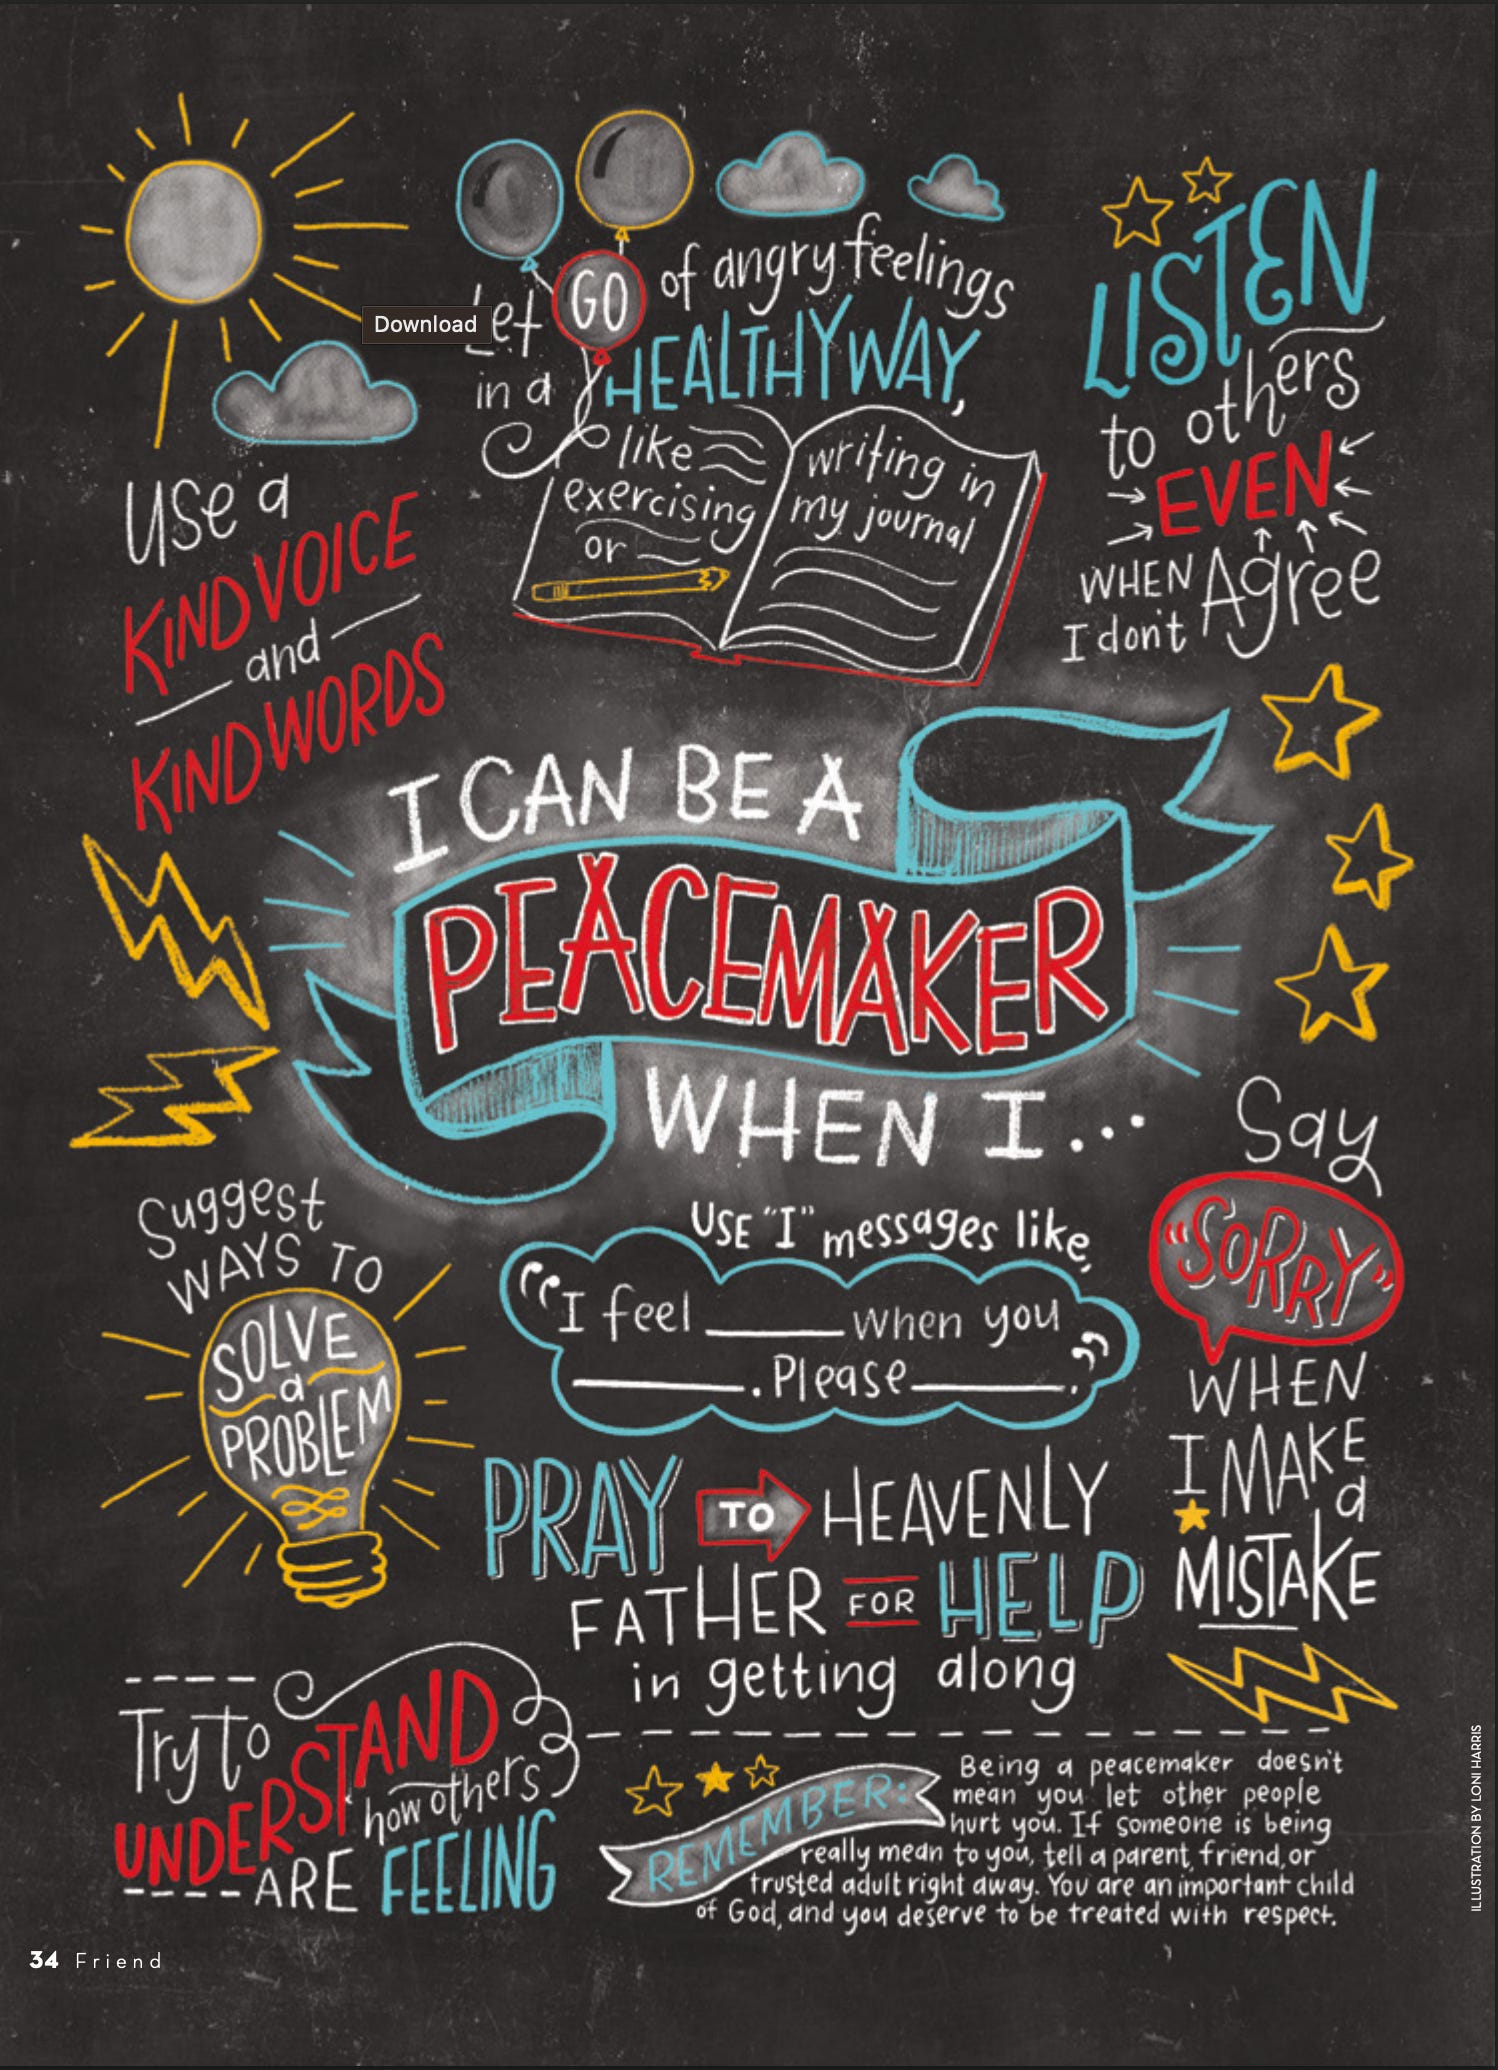 Let GO of angry feelings
in a HEALTHY WAY,
like
exercising
or
writing in
my journal
LISTEN
to others
EVEN
WHEN
I don't Agree
Use a
KIND VOICE
and
KIND WORDS
Download
I CAN BE A
PEACEMAKER
WHEN I...
Suggest
WAYS TO
SOLVE
a
PROBLEM
USE "I" messages like,
"I feel ______ when you
______. Please ______."
Say
"SORRY"
WHEN
I MAKE
a
MISTAKE
PRAY TO HEAVENLY
FATHER FOR HELP
in getting along
Try to
UNDERSTAND
how others
ARE FEELING
REMEMBER:
Being a peacemaker doesn't
mean you let other people
hurt you. If someone is being
really mean to you, tell a parent, friend, or
trusted adult right away. You are an important child
of God, and you deserve to be treated with respect.
ILLUSTRATION BY LONI HARRIS
34 Friend